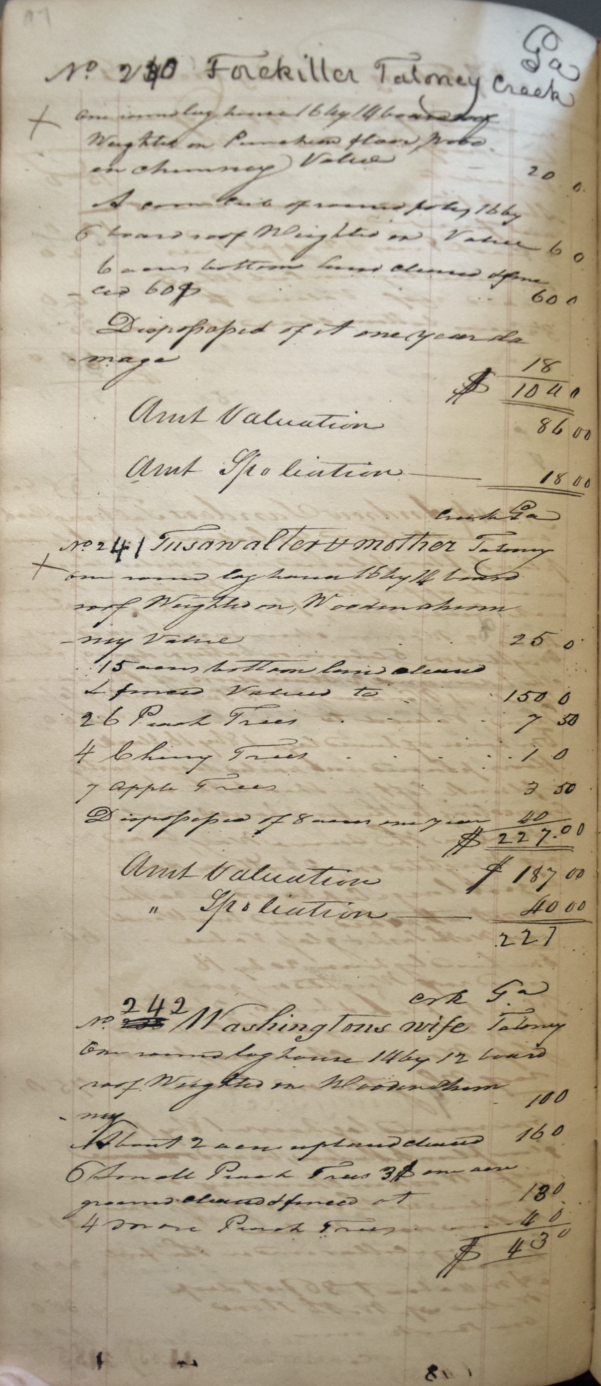 Ga
No 240 Forekiller Taloney Creek
One round log house 16 by 14 board roof
Weighted on Puncheon floor, wood
en chimney Value 20 0
A corn crib of round poles 16 by
6 board roof Weighted on Value 6 0
6 acres bottom land cleared & fen
ced 60 60 0
Dispossessed of it one year da
mage 18
$ 104 0
Amt Valuation 86 00
Amt Spoliation 18 00
creek Ga
No 241 Tusawalter & mother Taloney
One round log house 16 by 14 board
roof Weighted on, Wooden chim
ney Value 25 0
15 acres bottom land cleared
& fenced Valued to 150 0
26 Peach Trees 7 50
4 Cherry Trees 1 0
7 apple Trees 3 50
Dispossessed of 8 acres one year 40
$ 227.00
Amt Valuation $ 187 00
" Spoliation 40 00
227
crk Ga
No 242 Washingtons wife Taloney
One round log house 14 by 12 board
roof Weighted on Wooden chim
ney 10 0
About 2 acres upland cleared 16 0
6 Small Peach Trees 3$ one acre
ground cleared & fenced at 13 0
4 more Peach Trees 4 0
$ 43 0